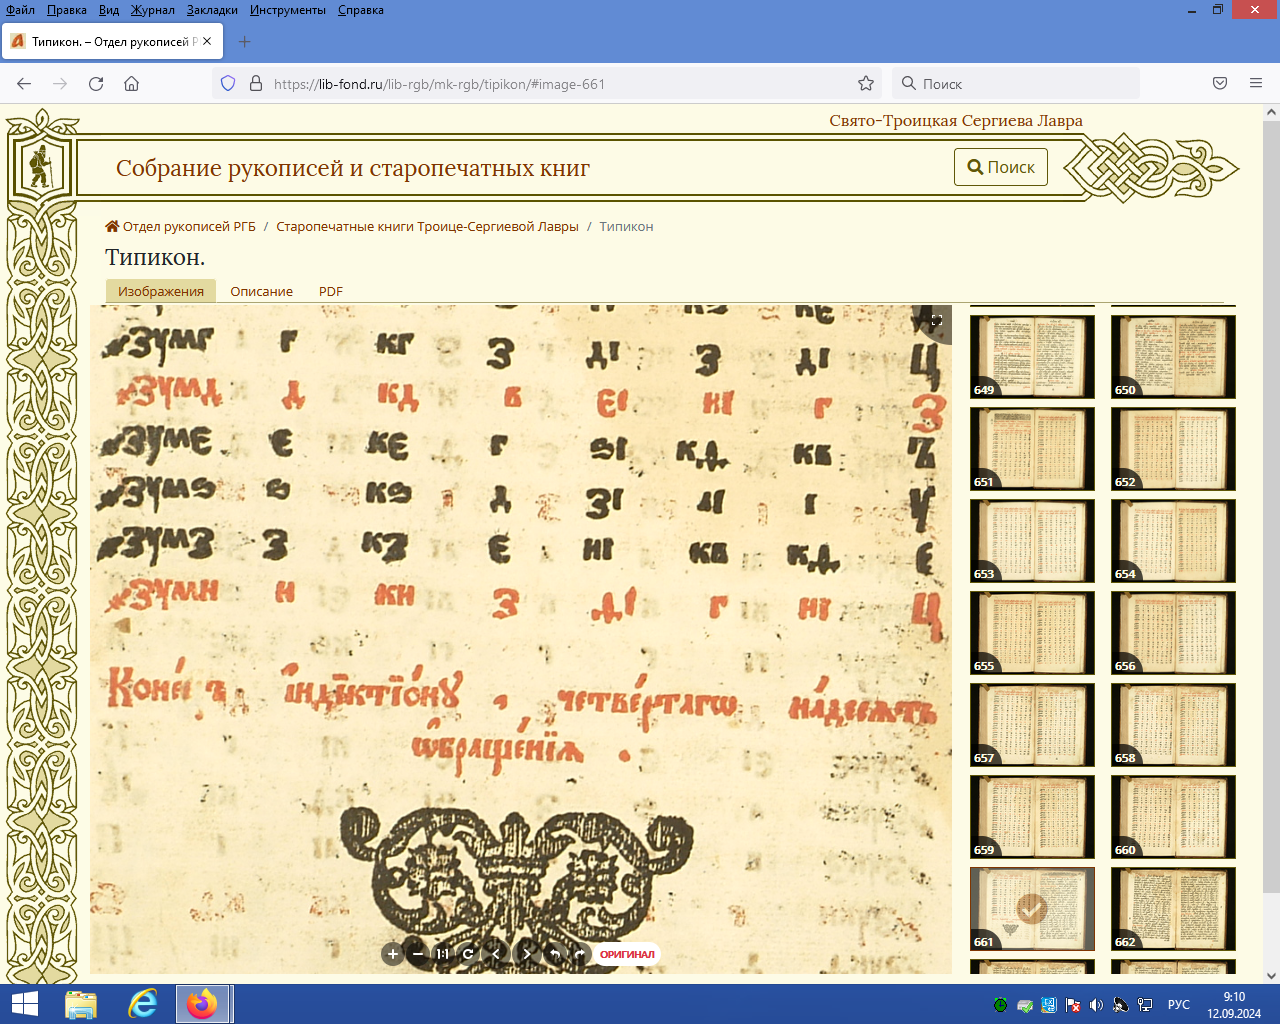 Файл Правка Вид Журнал Закладки Инструменты Справка
Типикон. – Отдел рукописей Р
https://lib-fond.ru/lib-rgb/mk-rgb/tipikon/#image-661
Поиск
Свято-Троицкая Сергиева Лавра
Собрание рукописей и старопечатных книг
Поиск
Отдел рукописей РГБ / Старопечатные книги Троице-Сергиевой Лавры / Типикон
Типикон.
Изображения Описание PDF
҂зумг г кг з ді з ді ц
҂зумд д кд в еі ні г з
҂зуме е ке г ѕі кд кв
҂зумѕ ѕ кѕ д зі аі і у
҂зумз з кз е ні кв кд е
҂зумн н кн з ді г ні ц
Коне́цъ і҆ндїктїо́нꙋ , четве́ртагѡ на́десѧть
ѡ҆браще́нїѧ .
1:1
ОРИГИНАЛ
649 650
651 652
653 654
655 656
657 658
659 660
661 662
РУС
9:10
12.09.2024